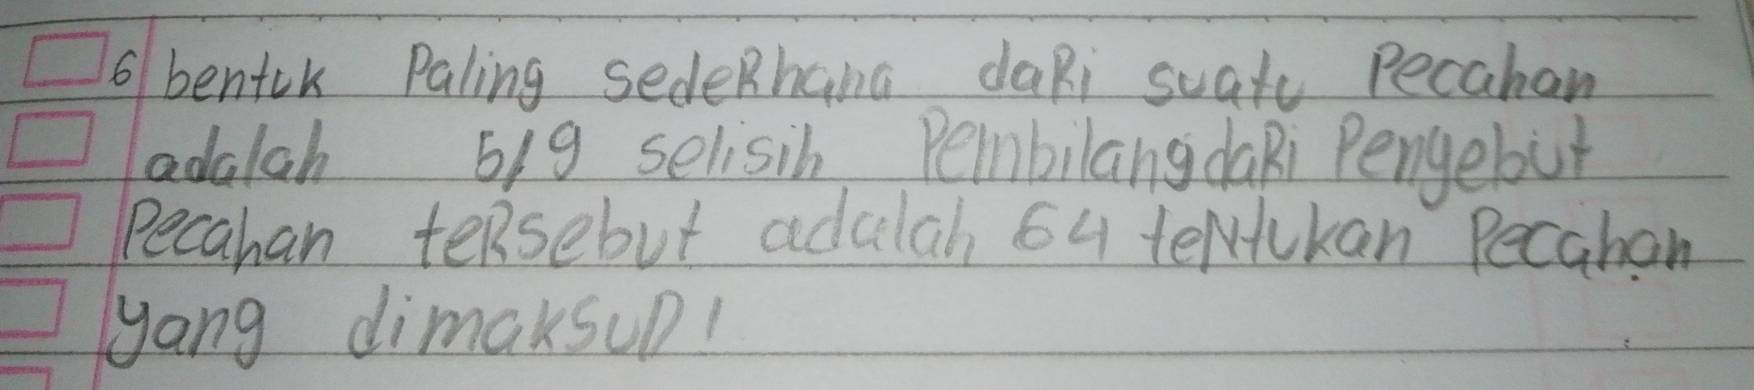 6 bentuk Paling sedeRhana daRi suatu Pecahan
adalah 5/9 selisih Pembilang daRi Pengebut
Pecahan teRsebut adalah 64 teNtukan Pecahan
yang dimaksuD!